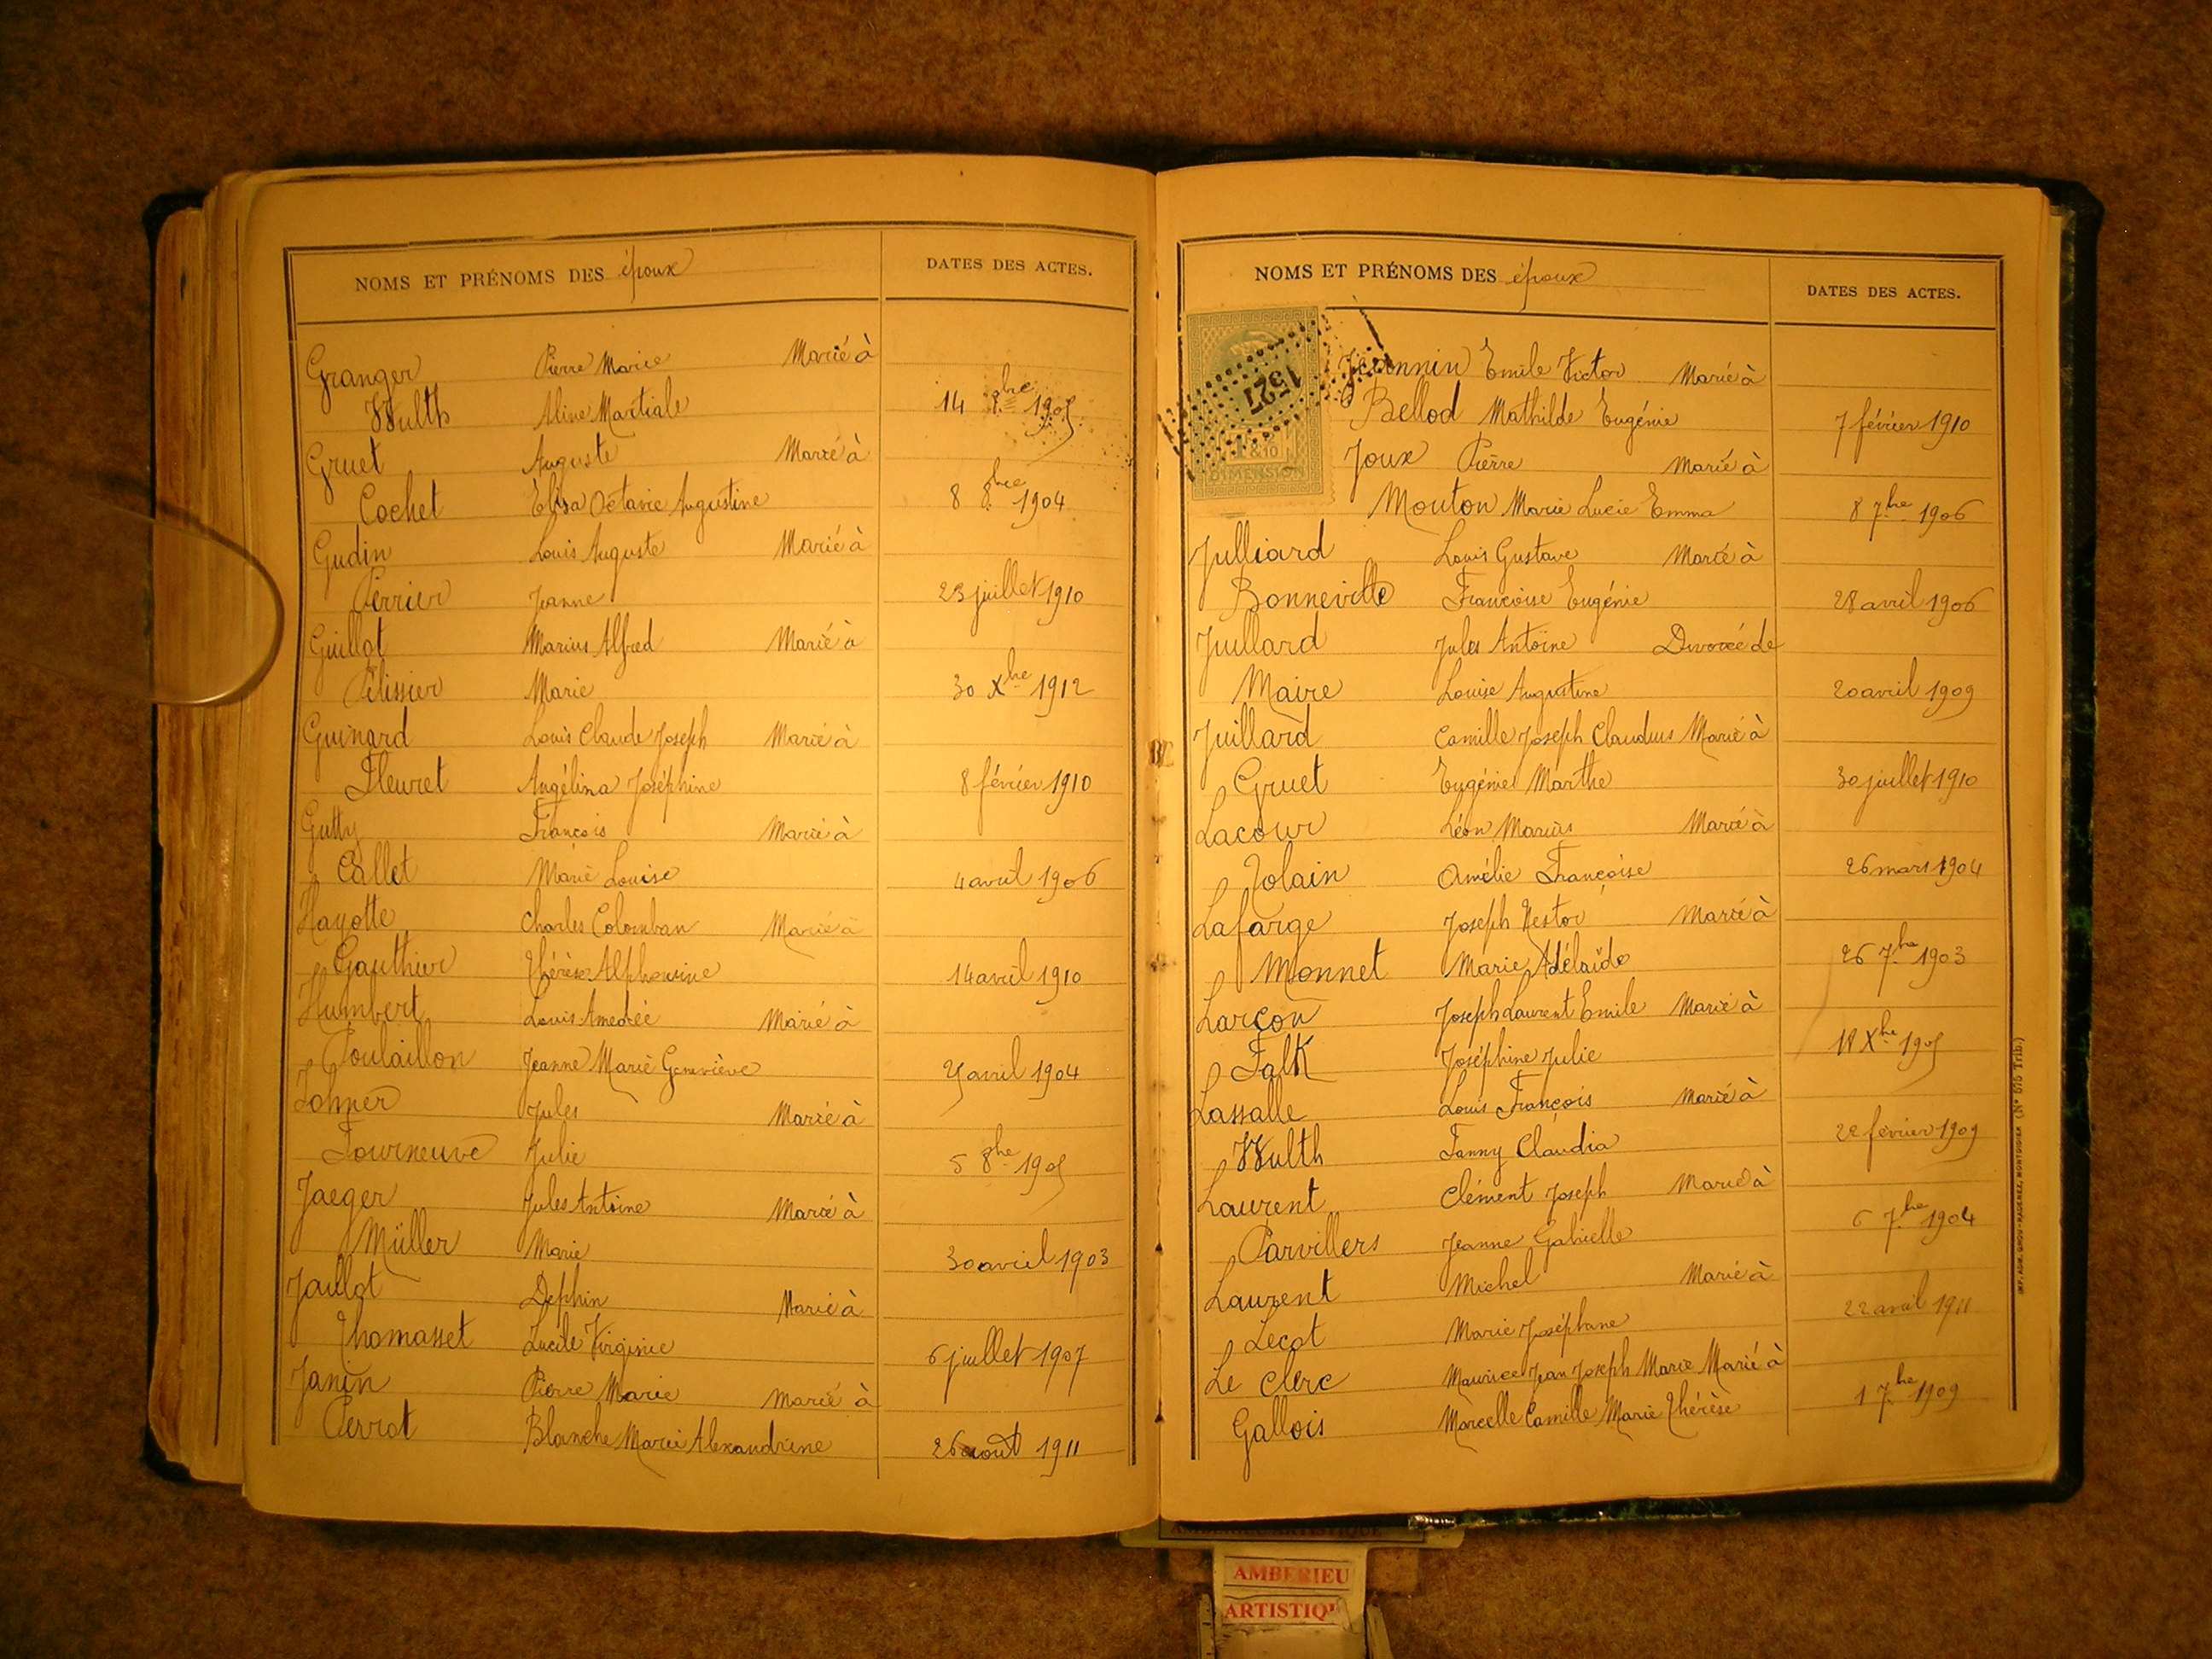 NOMS ET PRÉNOMS DES époux DATES DES ACTES.
Granger Pierre Marie Marié à
Wulth Aline Martiale 14 8bre 1905
Gruet Auguste Marié à
Cochet Élisa Octavie Augustine 8 8bre 1904
Gudin Louis Auguste Marié à
Perrier Jeanne 23 juillet 1910
Guillot Marius Alfred Marié à
Pélissier Marie 30 Xbre 1912
Guinard Louis Claude Joseph Marié à
Fleuret Angélina Joséphine 8 février 1910
Gutty François Marié à
Callet Marie Louise 4 avril 1906
Hayotte Charles Colomban Marié à
Gauthier Thérèse Alphonsine 14 avril 1910
Humbert Louis Amedée Marié à
Poulaillon Jeanne Marie Geneviève 5 avril 1904
Johner Jules Marié à
Fourneuve Julie 5 8bre 1905
Jaeger Jules Antoine Marié à
Müller Marie 30 avril 1903
Jaillot Dephin Marié à
Thomasset Lucile Virginie 6 juillet 1907
Janin Pierre Marie Marié à
Perrot Blanche Marie Alexandrine 26 août 1911
NOMS ET PRÉNOMS DES époux DATES DES ACTES.
Jeannin Emile Victor Marié à
Bellod Mathilde Eugénie 7 février 1910
1327
& 10
DIMENSION
Joux Pierre Marié à
Mouton Marie Lucie Emma 8 7bre 1906
Julliard Louis Gustave Marié à
Bonneville Françoise Eugénie 28 avril 1906
Juillard Jules Antoine Divorcé de
Maire Louise Augustine 20 avril 1909
Juillard Camille Joseph Claudius Marié à
Gruet Eugénie Marthe 30 juillet 1910
Lacour Léon Marius Marié à
Jolain Amélie Françoise 26 mars 1904
Lafarge Joseph Nestor Marié à
Monnet Marie Adélaïde 26 7bre 1903
Larçon Joseph Laurent Emile Marié à
Falk Joséphine Julie 18 Xbre 1905
Lassalle Louis François Marié à
Wulth Fanny Claudia 22 février 1909
Laurent Clément Joseph Marié à
Parvillers Jeanne Gabrielle 6 7bre 1904
Laurent Michel Marié à
Lecot Marie Joséphine 22 avril 1911
Le Clerc Maurice Jean Joseph Marie Marié à
Gallois Marcelle Camille Marie Thérèse 1 7bre 1909
(N° 575 Trib.)
AMBERIEU
ARTISTIQU